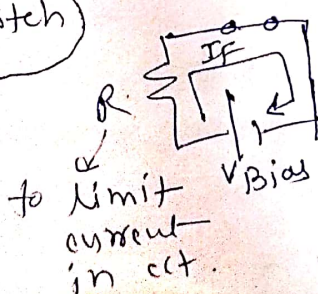 IF
R
VBias
to limit
current
in cct.